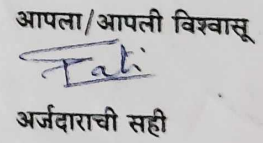 आपला/आपली विश्वासू
अर्जदाराची सही